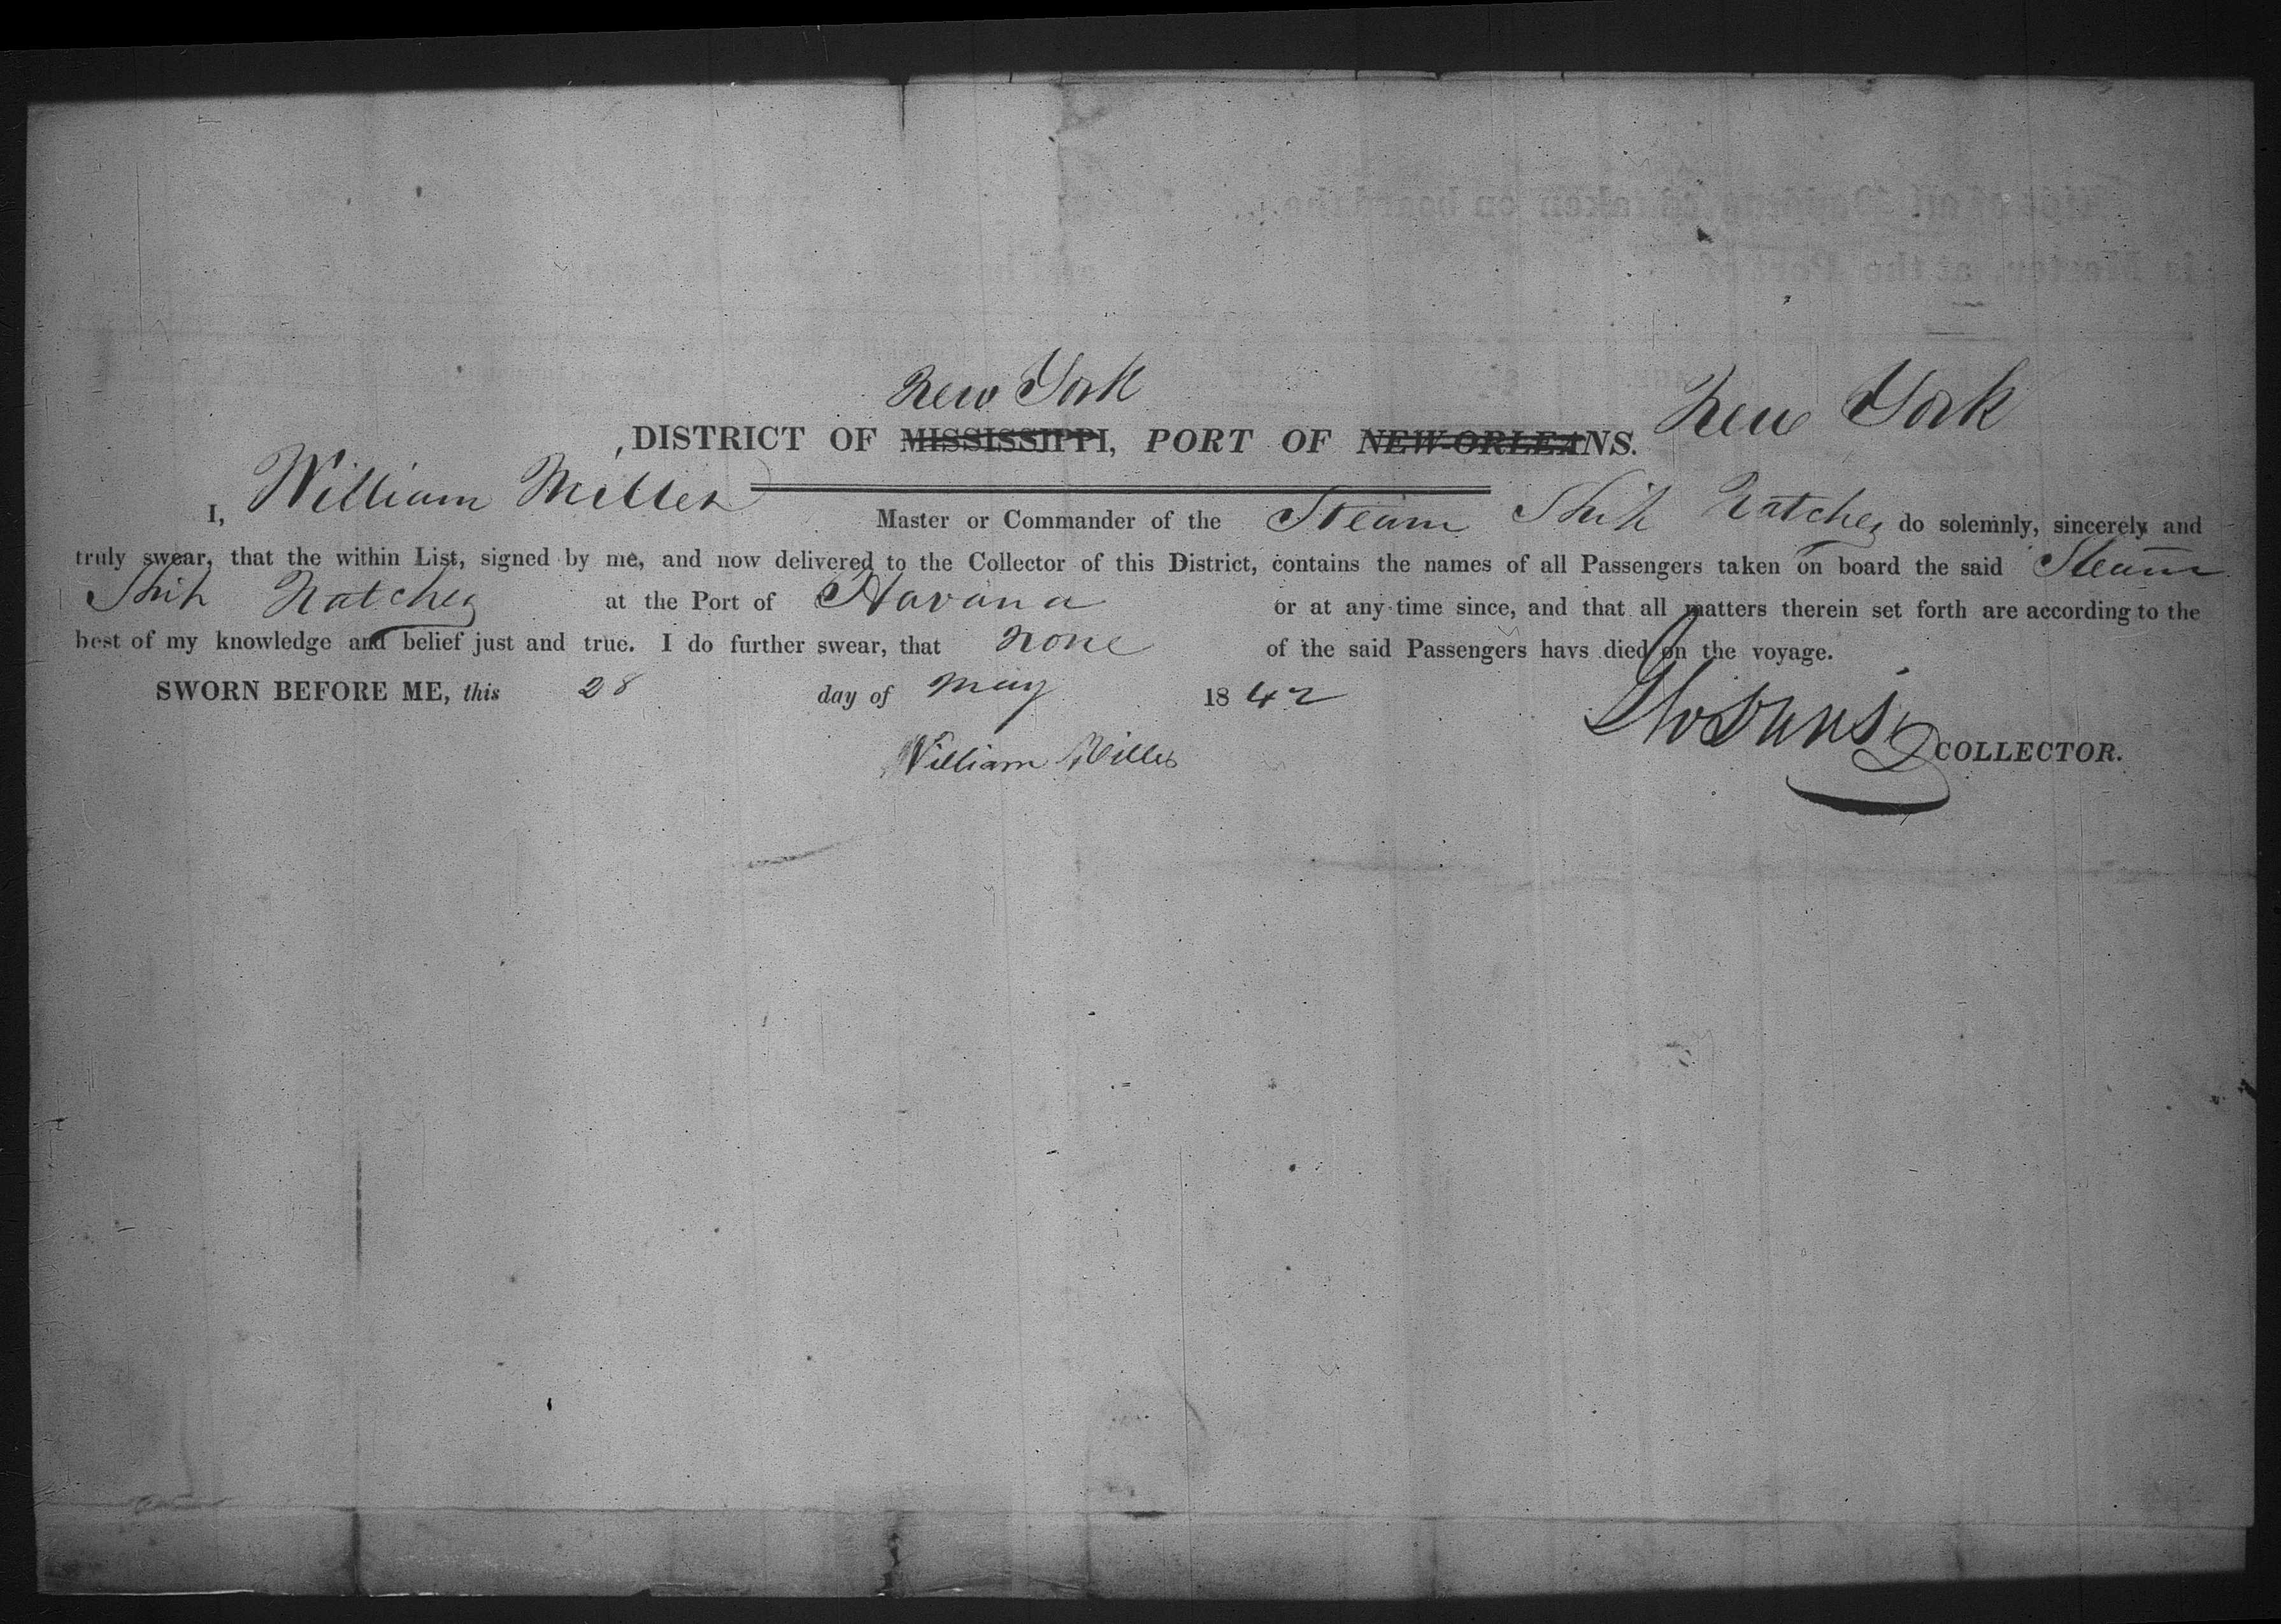 New York New York
DISTRICT OF MISSISSIPPI, PORT OF NEW-ORLEANS.
I, William Miller Master or Commander of the Steam Ship Natchez do solemnly, sincerely and
truly swear, that the within List, signed by me, and now delivered to the Collector of this District, contains the names of all Passengers taken on board the said Steam
Ship Natchez at the Port of Havana or at any time since, and that all matters therein set forth are according to the
best of my knowledge and belief just and true. I do further swear, that None of the said Passengers havs died on the voyage.
SWORN BEFORE ME, this 28 day of May 1842
William Miller COLLECTOR.